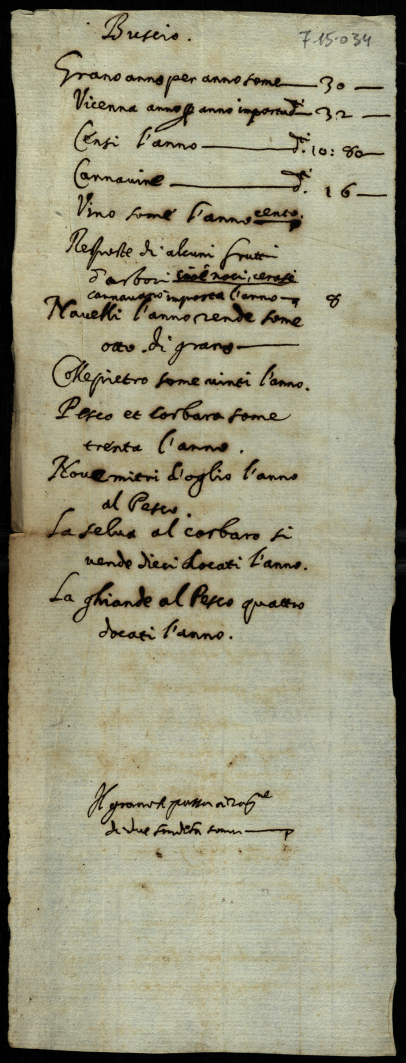 Buscio.
7-15-034
Grano anno per anno some — 30 —
Vicenna anno p anno importa di — 32 —
Censi l'anno — di. 10: 80 —
Cannavine — di. 16 —
Vino some l'anno cento.
Risposte di alcuni frutti
d'arbori cioè noci, cerase
importa l'anno — 8
Navelli l'anno rende some
otto di grano —
Collepietro some vinti l'anno.
Pesco et Corbara some
trenta l'anno.
Nove mitri d'oglio l'anno
al Pesco.
La selva al corbaro si
vende dieci docati l'anno.
La ghiande al Pesco quattro
docati l'anno.
Il grano
di due